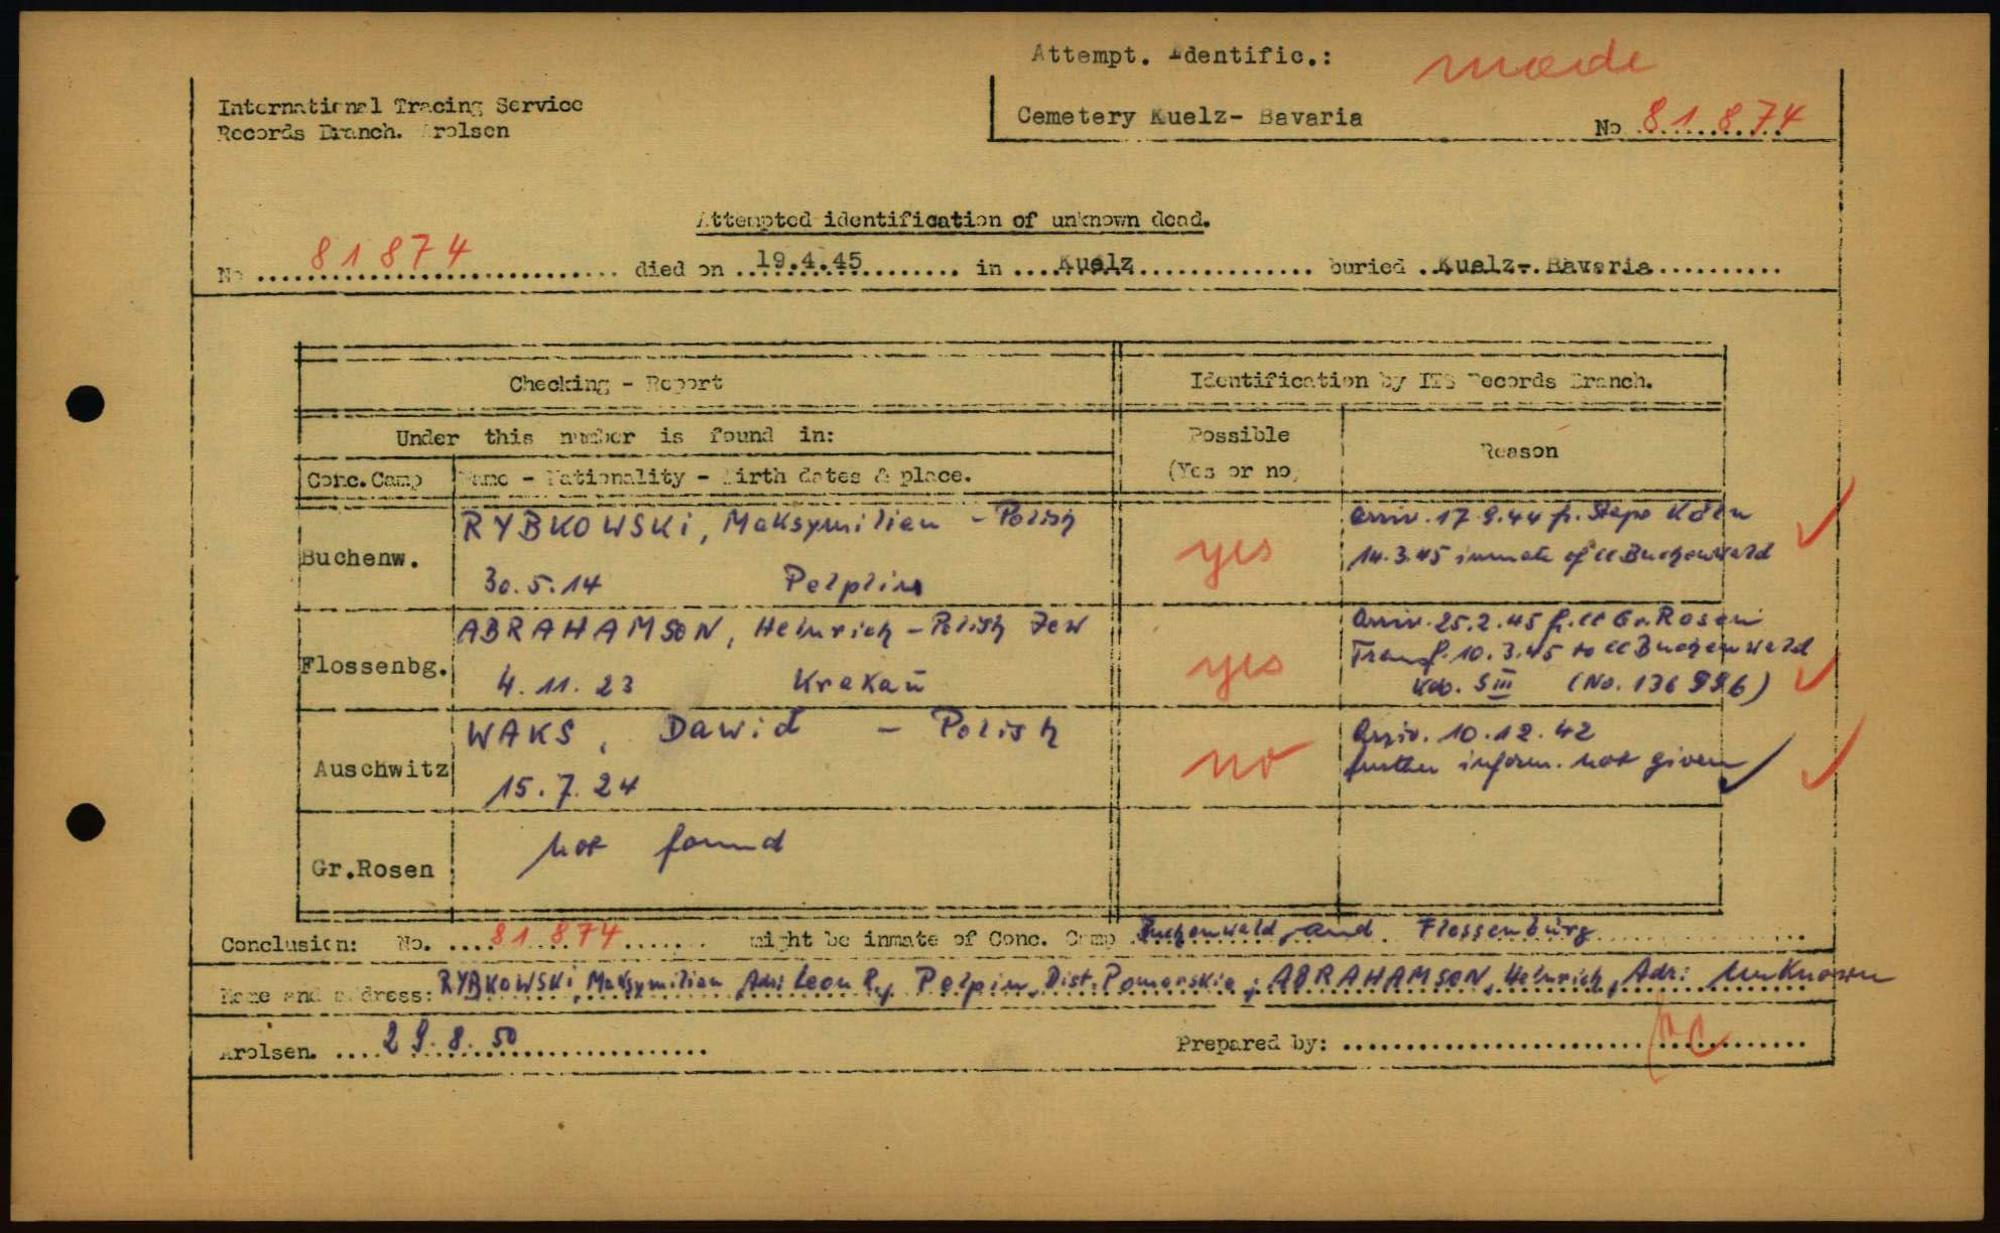 Attempt. Identific.: made
International Tracing Service
Records Branch. Arolsen
Cemetery Kuelz- Bavaria
No 81874
Attempted identification of unknown dead.
No 81874 died on 19.4.45 in Kuelz buried Kuelz-. Bavaria
Checking - Report
Identification by ITS Records Branch.
Under this number is found in:
Possible
(Yes or no)
Reason
Conc.Camp
Name - Nationality - Birth dates & place.
Buchenw.
RYBKOWSKi, Maksymilian - Polish
30.5.14 Pelplin
yes
arriv. 17.9.44 fr. Stapo Köln
14.3.45 inmate of CC Buchenwald
Flossenbg.
ABRAHAMSON, Heinrich - Polish Jew
4.11.23 Krakau
yes
arriv. 25.2.45 f. CC Gr. Rosen
Transf. 10.3.45 to CC Buchenwald
Kdo. SIII (No. 136996)
Auschwitz
WAKS, Dawid - Polish
15.7.24
no
arriv. 10.12.42
further inform. not given
Gr.Rosen
not found
Conclusion: No. 81874 might be inmate of Conc. Camp Buchenwald, and Flossenbürg
Name and address: RYBKOWSKi, Maksymilian, Adr: Leon R., Pelplin, Dist. Pomorskie; ABRAHAMSON, Heinrich, Adr: Unknown
Arolsen. 29.8.50
Prepared by: